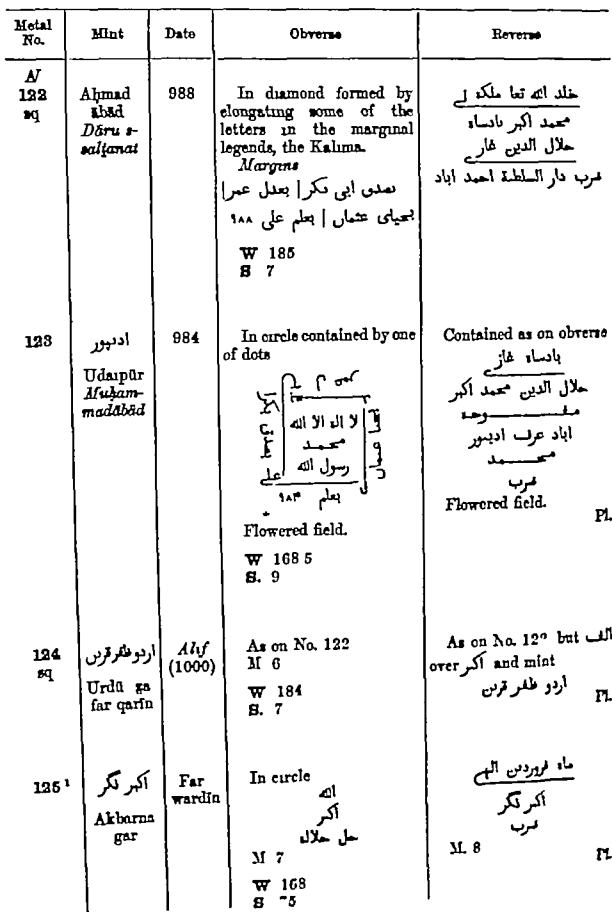 Metal No. Mint Date Obverse Reverse
N
122
sq
Aḥmad
ābād
Dāru s-
salṭanat
988
In diamond formed by
elongating some of the
letters in the marginal
legends, the Kalima.
Margins
بصدق ابی بکر | بعدل عمر |
بحیای عثمان | بعلم علی ۹۸۸
W 185
S 7
خلد الله تعا ملکه
محمد اکبر بادساه
حلال الدین غاری
ضرب دار السلطنة احمد اباد
123
ادیپور
Udaipūr
Muḥam-
madābād
984
In circle contained by one
of dots
لا اله الا الله
محمد
رسول الله
بعلم ۹۸۴
Flowered field.
W 168 5
S. 9
Contained as on obverse
بادساه غازی
حلال الدین محمد اکبر
اباد عرف ادیپور
محمد
ضرب
Flowered field.
Pl.
124
sq
اردو ظفر قرین
Urdū ga
far qarīn
Alif
(1000)
As on No. 122
M 6
W 184
S. 7
As on No. 122 but الف
over اکبر and mint
اردو ظفر قرین
Pl.
125 ¹
اکبر نگر
Akbarna
gar
Far
wardīn
In circle
الله
اکبر
جل حلاله
M 7
W 168
S 75
ماه فروردین الهی
اکبر نگر
ضرب
M. 8
Pl.